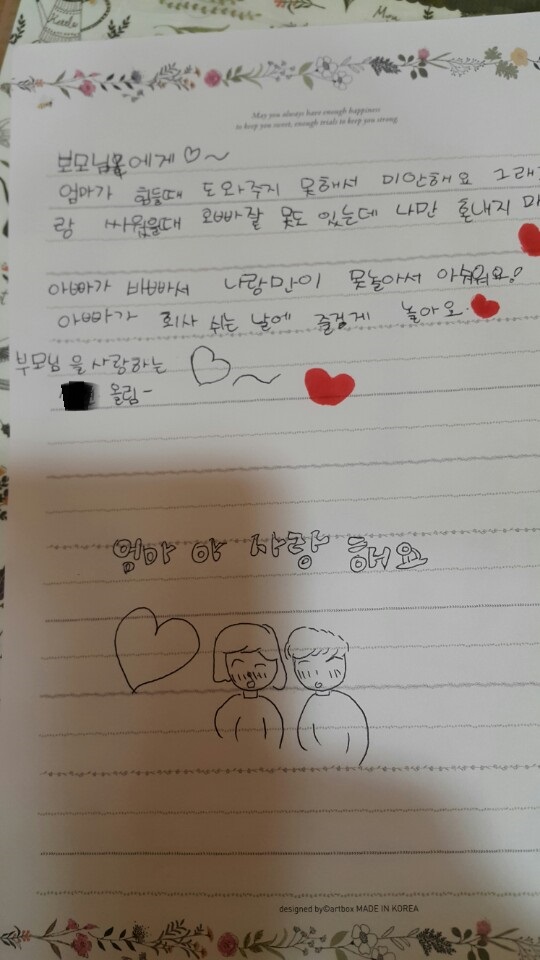 May you always have enough happiness
to keep you sweet, enough trials to keep you strong
보모님 에게
엄마가 힘들때 도와주지 못해서 미안해요 그래
랑 싸웠을때 오빠잘 못도 있는데 나만 혼내지 마
아빠가 바빠서 나랑만이 못놀아서 아쉬워요!
아빠가 회사 쉬는 날에 즐겁게 놀아요
부모님을 사랑하는
올림-
사랑 해요
designed by©artbox MADE IN KOREA